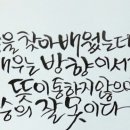 을 찾아 배웠는데
배우는 방향이 서
뜻이 통하지 않으
승의 잘못이다